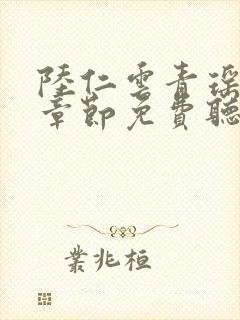 陸仁雲青瑶
章節免費聽
業兆桓